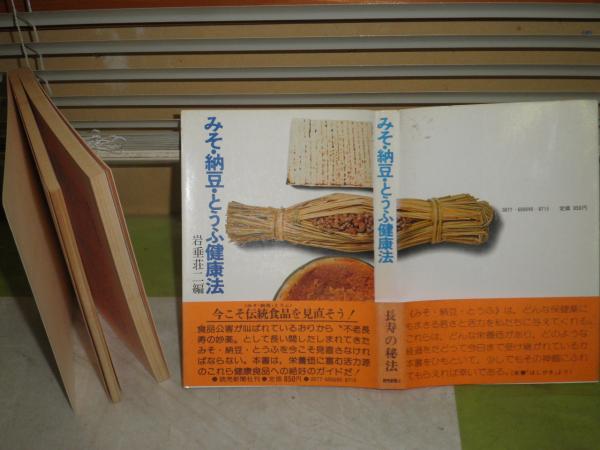 みそ・納豆・とうふ健康法
岩垂荘二編
(みそ・納豆・とうふ)
今こそ伝統食品を見直そう!
食品公害が叫ばれているおりから“不老長
寿の妙薬”として長い間したしまれてきた
みそ・納豆・とうふを今こそ見直さなけれ
ばならない。本書は、栄養価に富む活力源
のこれら健康食品への絶好のガイドだ!
●読売新聞社刊●定価850円●0077-600690-8715
みそ・納豆・とうふ健康法
長寿の秘法
読売新聞社
0077-600690-8715 定価 850円
《みそ・納豆・とうふ》は、どんな保健薬に
もまさる若さと活力を私たちに与えてくれる。
これらは、どんな栄養価があり、どのような
経過をたどって今日まで受け継がれているか
本書をひもといて、少しでもその神秘にふれ
てもらえれば幸いである。(本書「はしがき」より)